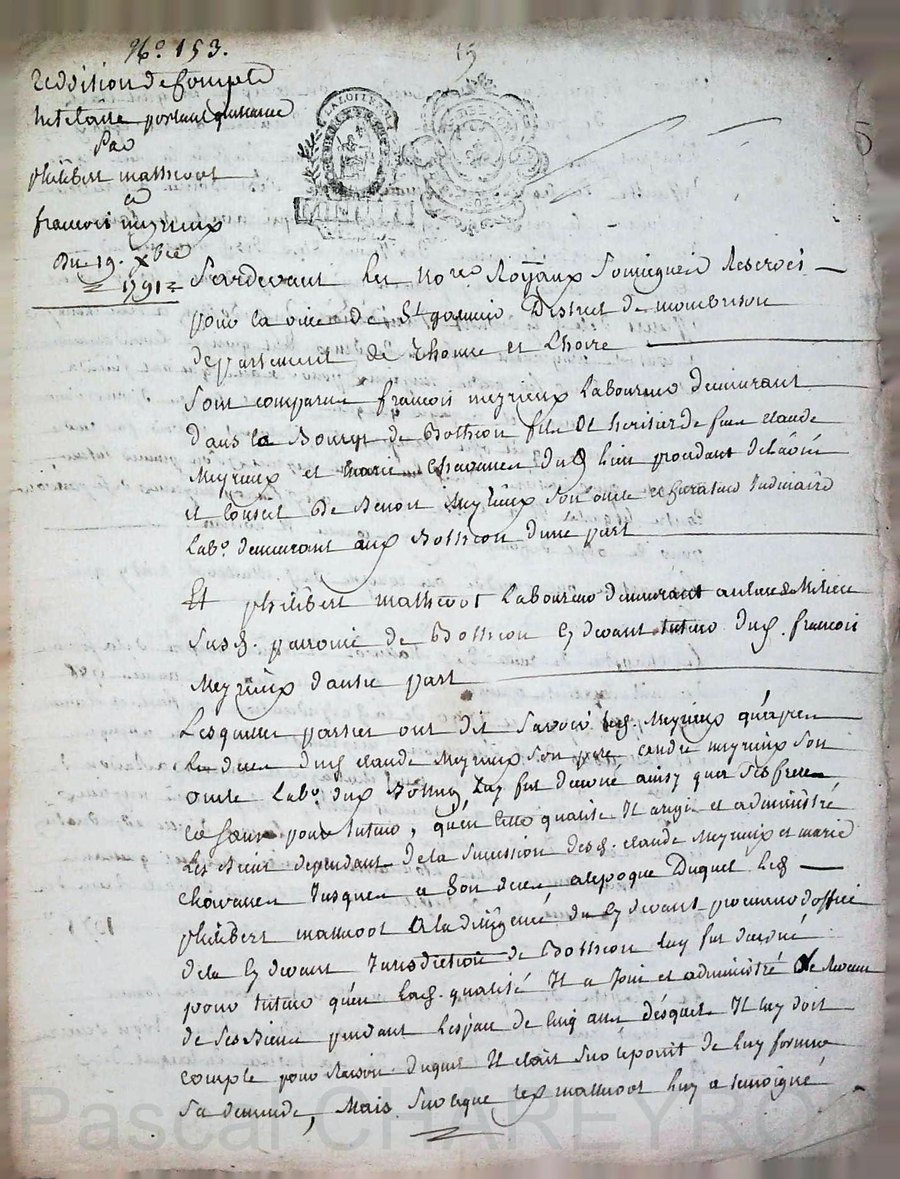 N.o 153.
15
Reddition de Compte
portant quittance
Par
philibert mathevot
a
françois meyrieux
Du 19. Xbre
1791
LA LOI ET LE ROI
Pardevant les no.res Royaux soussignés Reservés
pour la ville de St galmier District de montbrison
departement de Rhonne et Lhoire
sont comparus françois meyrieux Laboureur demeurant
dans le Bourg de Bothéon fils et heritier de feu claude
Meyrieux et marie Chavanen dud. lieu procedant de l'avis
et Conseil de Benoit Meyrieux son oncle et Curateur Judiciaire
Lab.r demeurant aud. Bothéon d'une part
Et philibert mathevot Laboureur demeurant au lieu de
susd. parroisse de Bothéon Cy devant tuteur dud. françois
Meyrieux d'autre part
Lesquelles parties ont dit savoir led. Meyrieux qu'apres
Le deces dud. claude Meyrieux son pere, meyrieux son
oncle Lab.r dud. Bothéon luy fut donné ainsy qu'a ses freres
et sœur pour tuteur, qu'en cette qualité Il a regi et administré
Les Biens dependant de la succession desd. claude Meyrieux et marie
Chavanen Jusques a son deces a l'epoque Duquel led.
philibert mathevot a la diligence du Cy devant procureur d'office
de la Cy devant Jurisdiction de Bothéon luy fut donné
pour tuteur qu'en lad. qualité Il a Joui et administré le revenu
de ses Biens pendant l'espace de cinq ans desquels Il luy doit
compte pour Raison duquel Il etait sur le point de luy former
sa demande, Mais sur ce que led. mathevot luy a temoigné
Pascal CHAREYRON